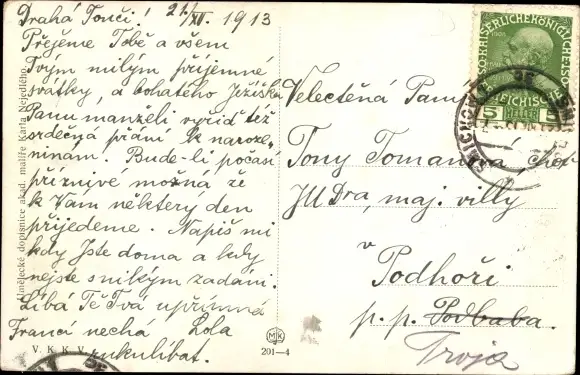 Drahá Tonči! 21/XII. 1913
Přejeme Tobě a všem
Tvým milým příjemné
svátky, a bohatého Ježíška
Panu manželi vyřiď též
srdečná přání k naroze-
ninám. Bude-li počasí
příznivé možná že
k Vám některý den
přijedeme. Napiš mi
kdy Jste doma a kdy
nejste s nikým zadáni.
Líbá Tě Tvá upřímná
Lola
Francí nechá
rukulíbat.
V. K. K. V.
Umělecké dopisnice akad. malíře Karla Nejedlého.
MK
201—4
Velectěná Paní
Tony Tomanová, choť
JUDra, maj. villy
v
Podhoři
p. p. Podbaba.
Troja
5 HELLER 5
SMÍCHOV